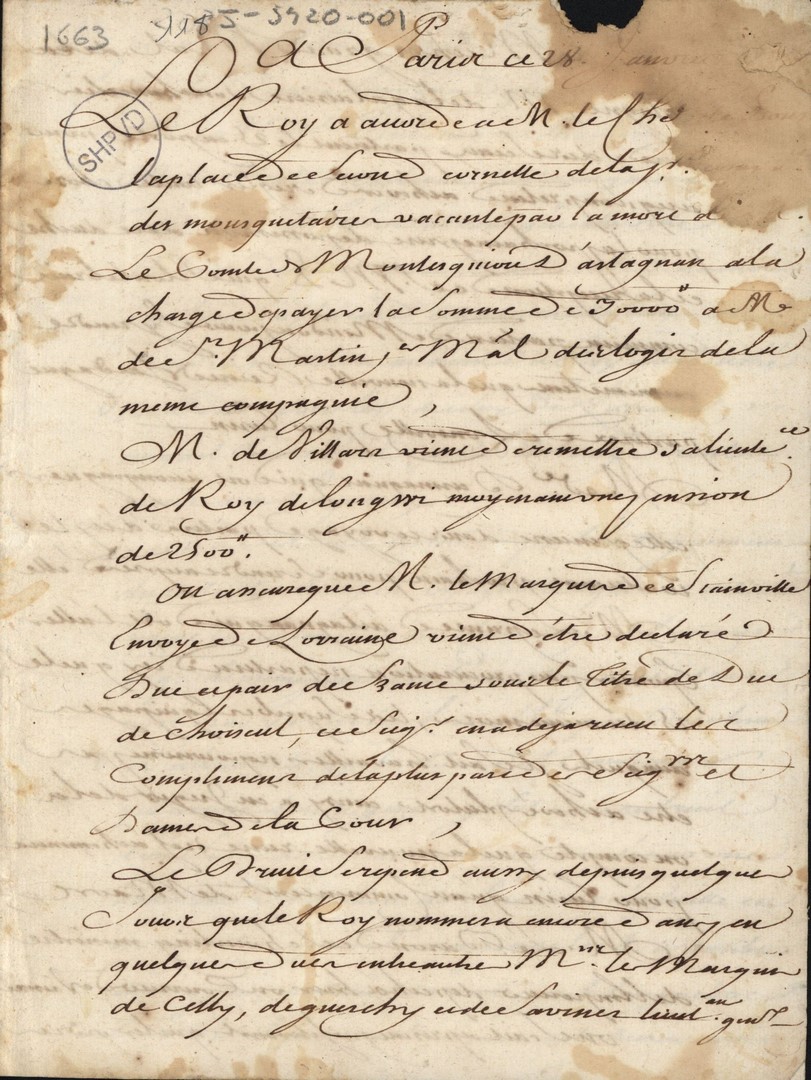 1663 1185-5920-001
A Paris ce 28 Janvier
SHPVD
Le Roy a accordé a M. le Che
la place de second cornette de la p.re
des mousquetaires vacante par la mort d
Le Comte de Montesquiou d'artagnan a la
charge de payer la Somme de 30000ʰ a M
de S.t Martin, M.al des logis de la
meme compagnie,
M. de Villars vient de remettre sa lieute.ce
de Roy de longwi moyenant une pension
de 2500ʰ.
On assure que M. le Marquis de Stainville
Envoyé de Lorraine vient d'être declaré
Duc et pair de france sous le Titre de Duc
de choiseul, ce Seig.r en a deja receu les
Compliments de la plus part des Seig.rs et
Dames de la Cour,
Le Bruit se repend aussy depuis quelques
Jours que le Roy nommera encore dans peu
quelques ducs entre autre M.rs les Marquis
de Celly, de guerchy et de Savines lieut.an gen.x